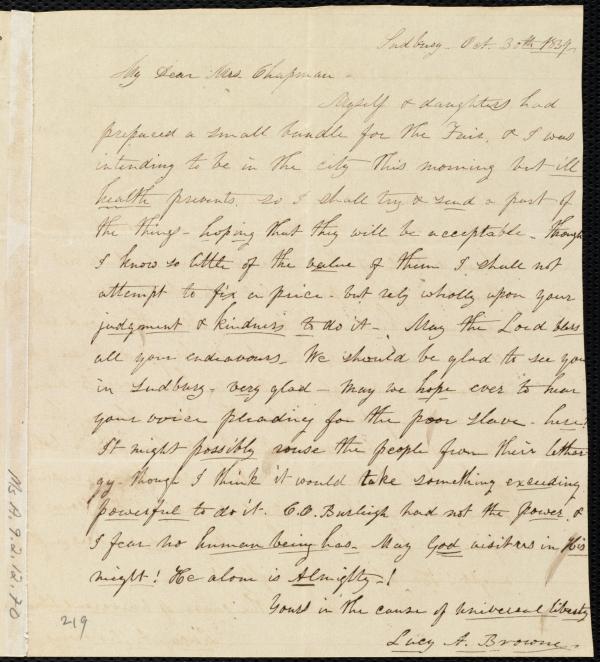 Sudbury - Oct. 30th 1839,
My Dear Mrs. Chapman -
Myself & daughters had
prepared a small bundle for the Fair, & I was
intending to be in the city this morning but ill
health prevents, so I shall try & send a part of
the things - hoping that they will be acceptable - though
I know so little of the value of them I shall not
attempt to fix a price - but rely wholly upon your
judgment & kindness to do it - May the Lord bless
all your endeavours - We should be glad to see you
in Sudbury - very glad - May we hope ever to hear
your voice pleading for the poor slave - here?
It might possibly rouse the people from their lethar
gy - though I think it would take something exceeding
powerful to do it. C.C. Burleigh had not the power, &
I fear no human being has - May God visit us in His
might! He alone is Almighty -!
Yours in the cause of universal liberty
Lucy A. Browne.
219
Ms. A. 9. 2. 12. 70